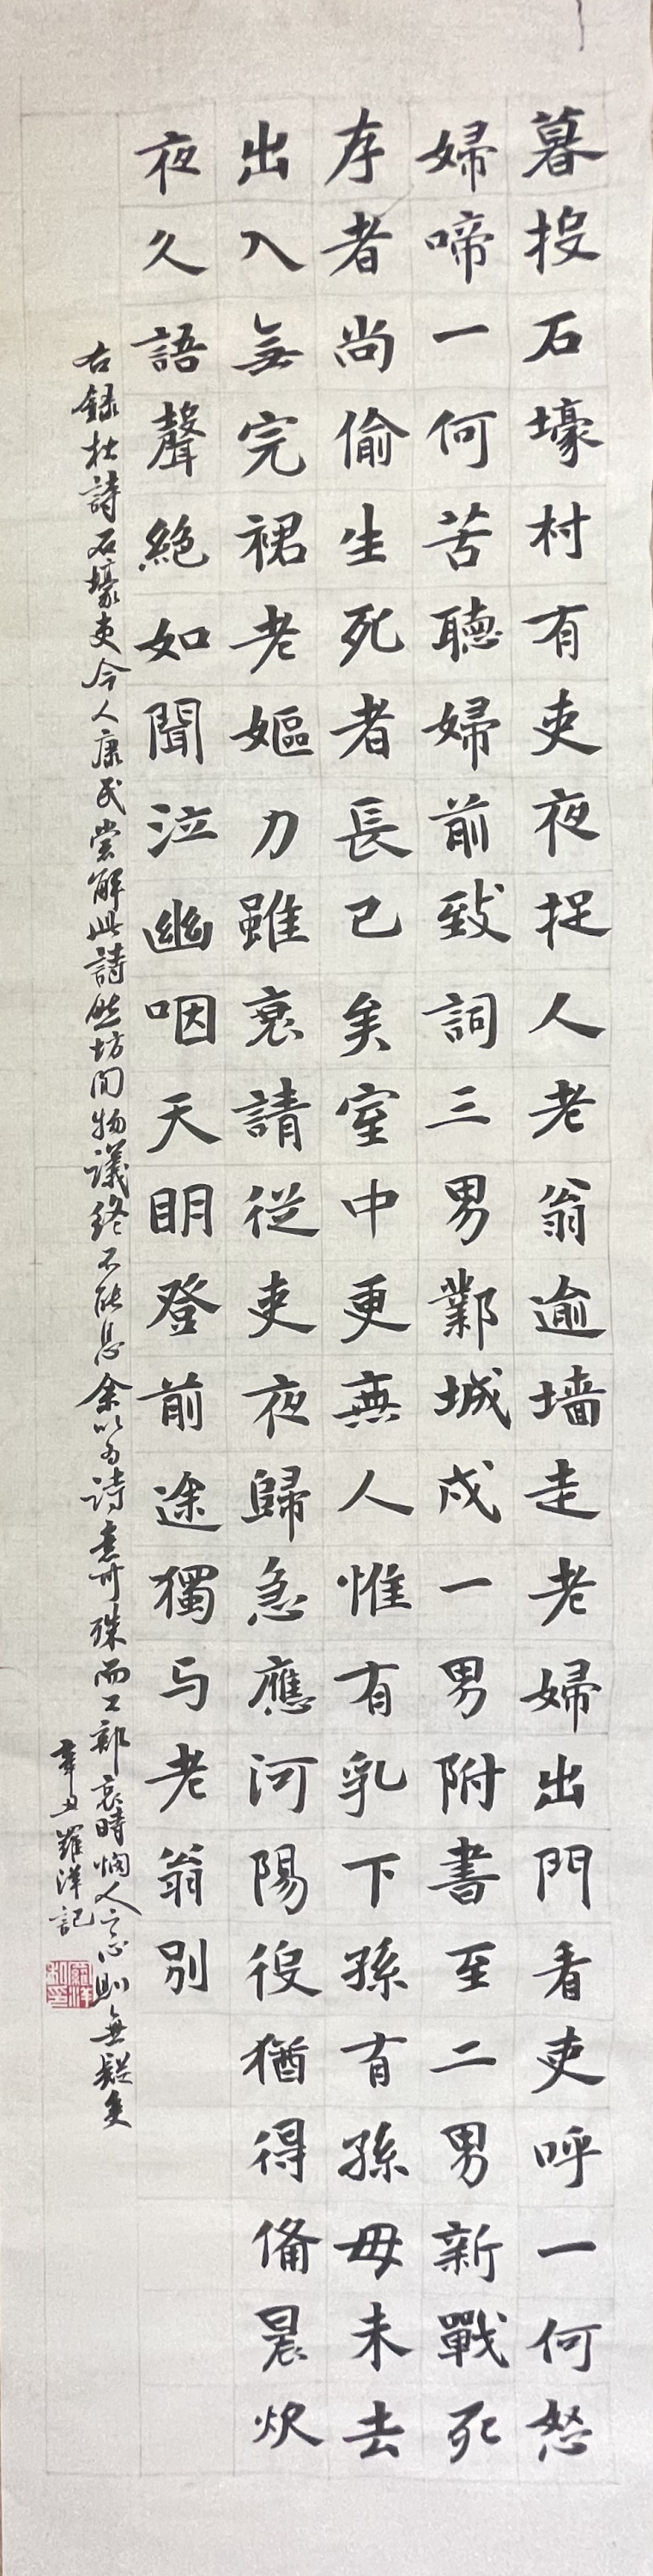 暮投石壕村有吏夜捉人老翁逾墙走老婦出門看吏呼一何怒
婦啼一何苦聽婦前致詞三男鄴城戍一男附書至二男新戰死
存者尚偷生死者長已矣室中更無人惟有乳下孫有孫母未去
出入無完裙老嫗力雖衰請從吏夜歸急應河陽役猶得備晨炊
夜久語聲絶如聞泣幽咽天明登前途獨与老翁别
右録杜詩石壕吏今人康民嘗解此詩然坊间物議終不能息余以为诗意可殊而工部哀時憫人之心則無疑矣
辛丑羅洋記